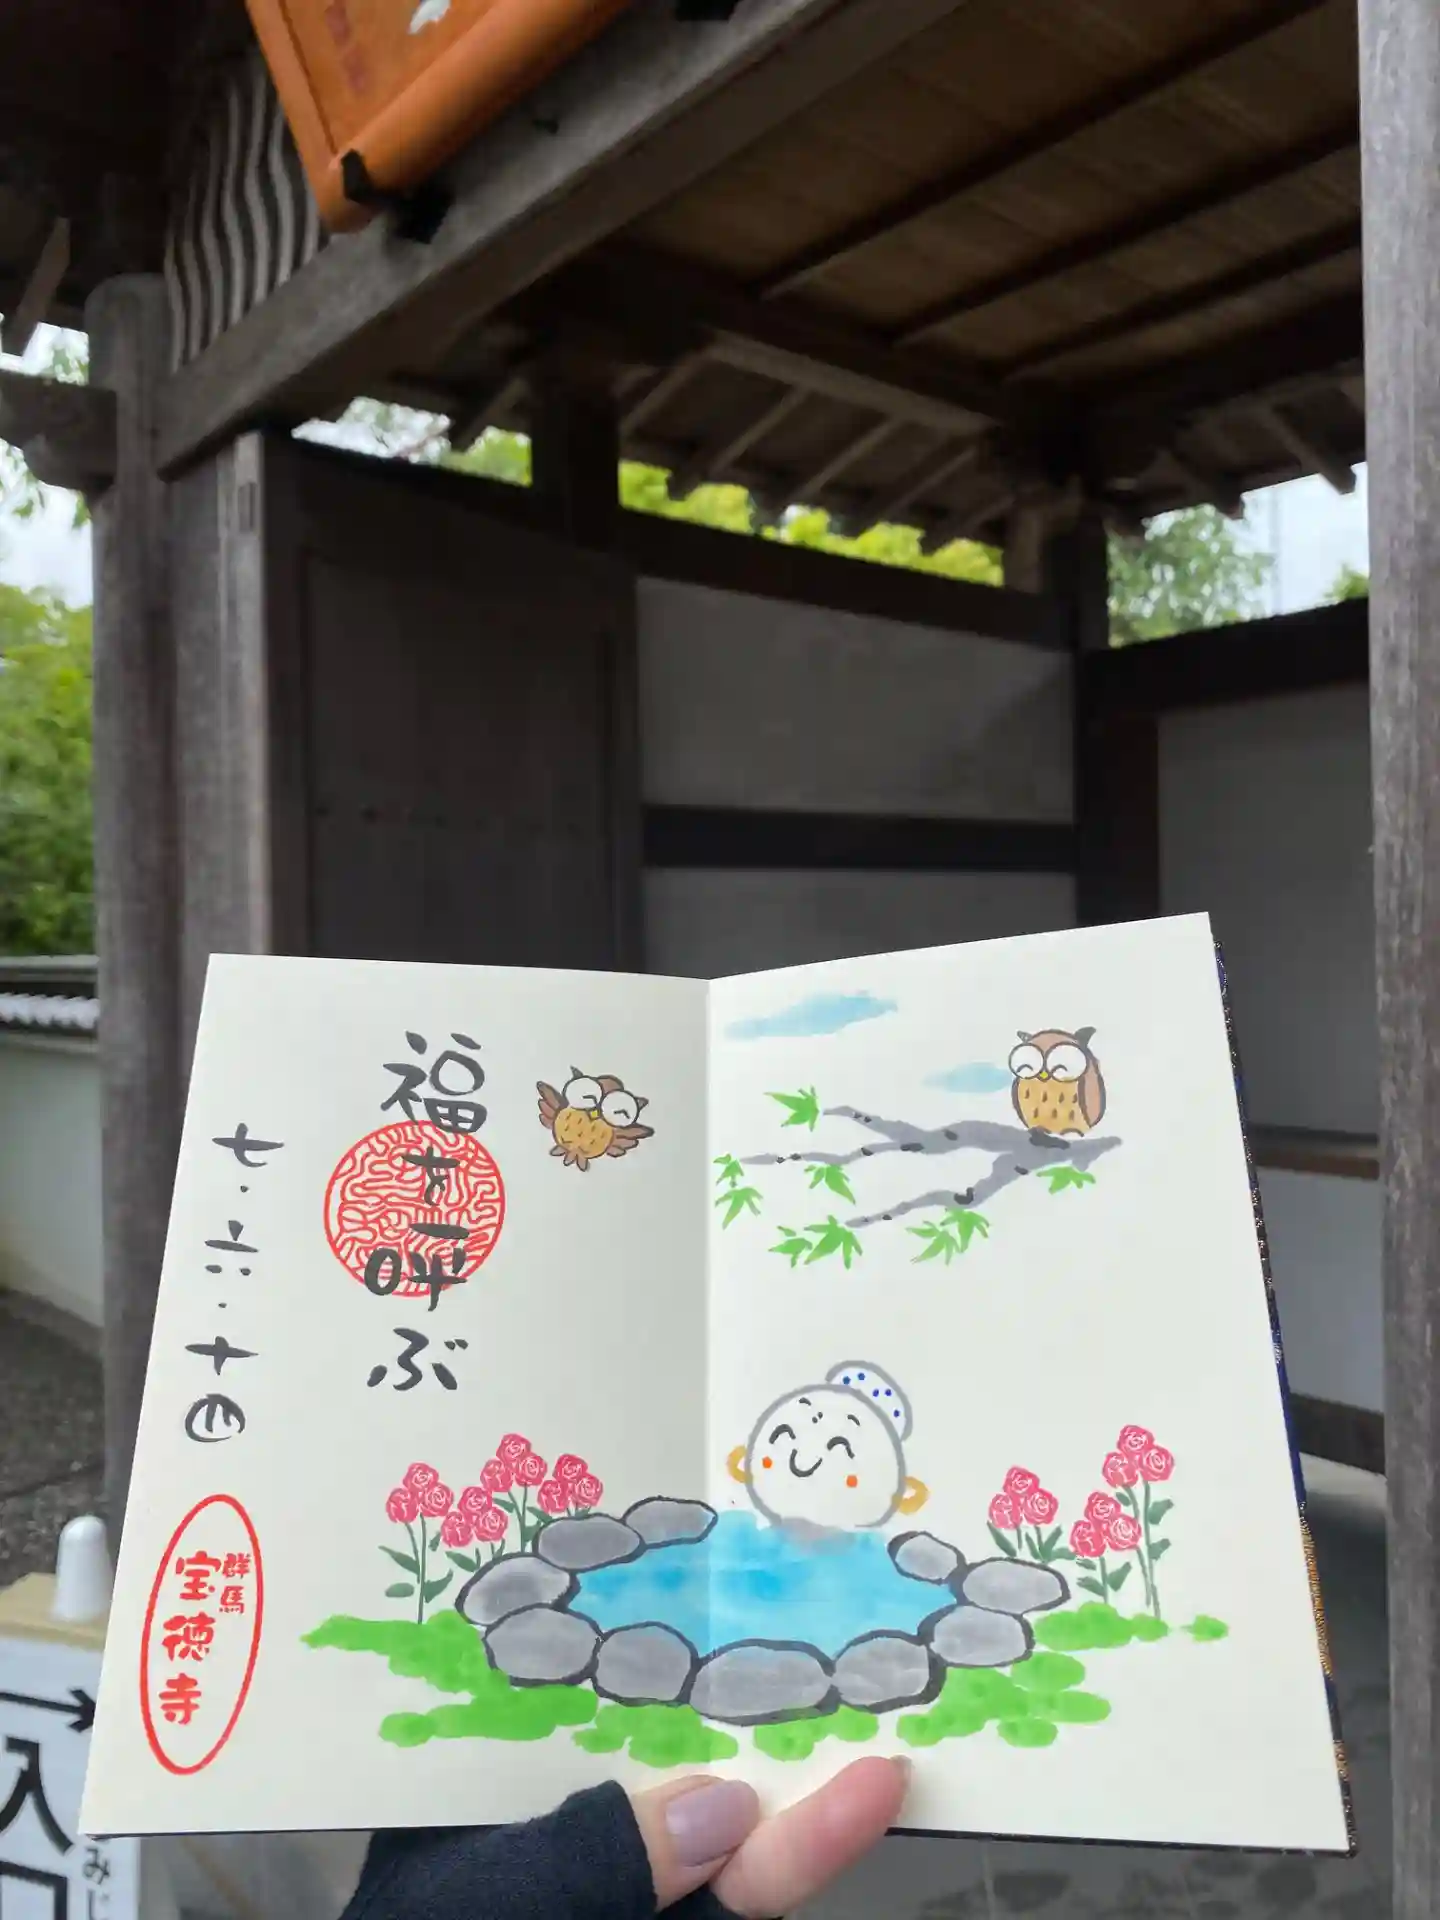 福を呼ぶ
七・六・十四
群馬
宝徳寺
入口